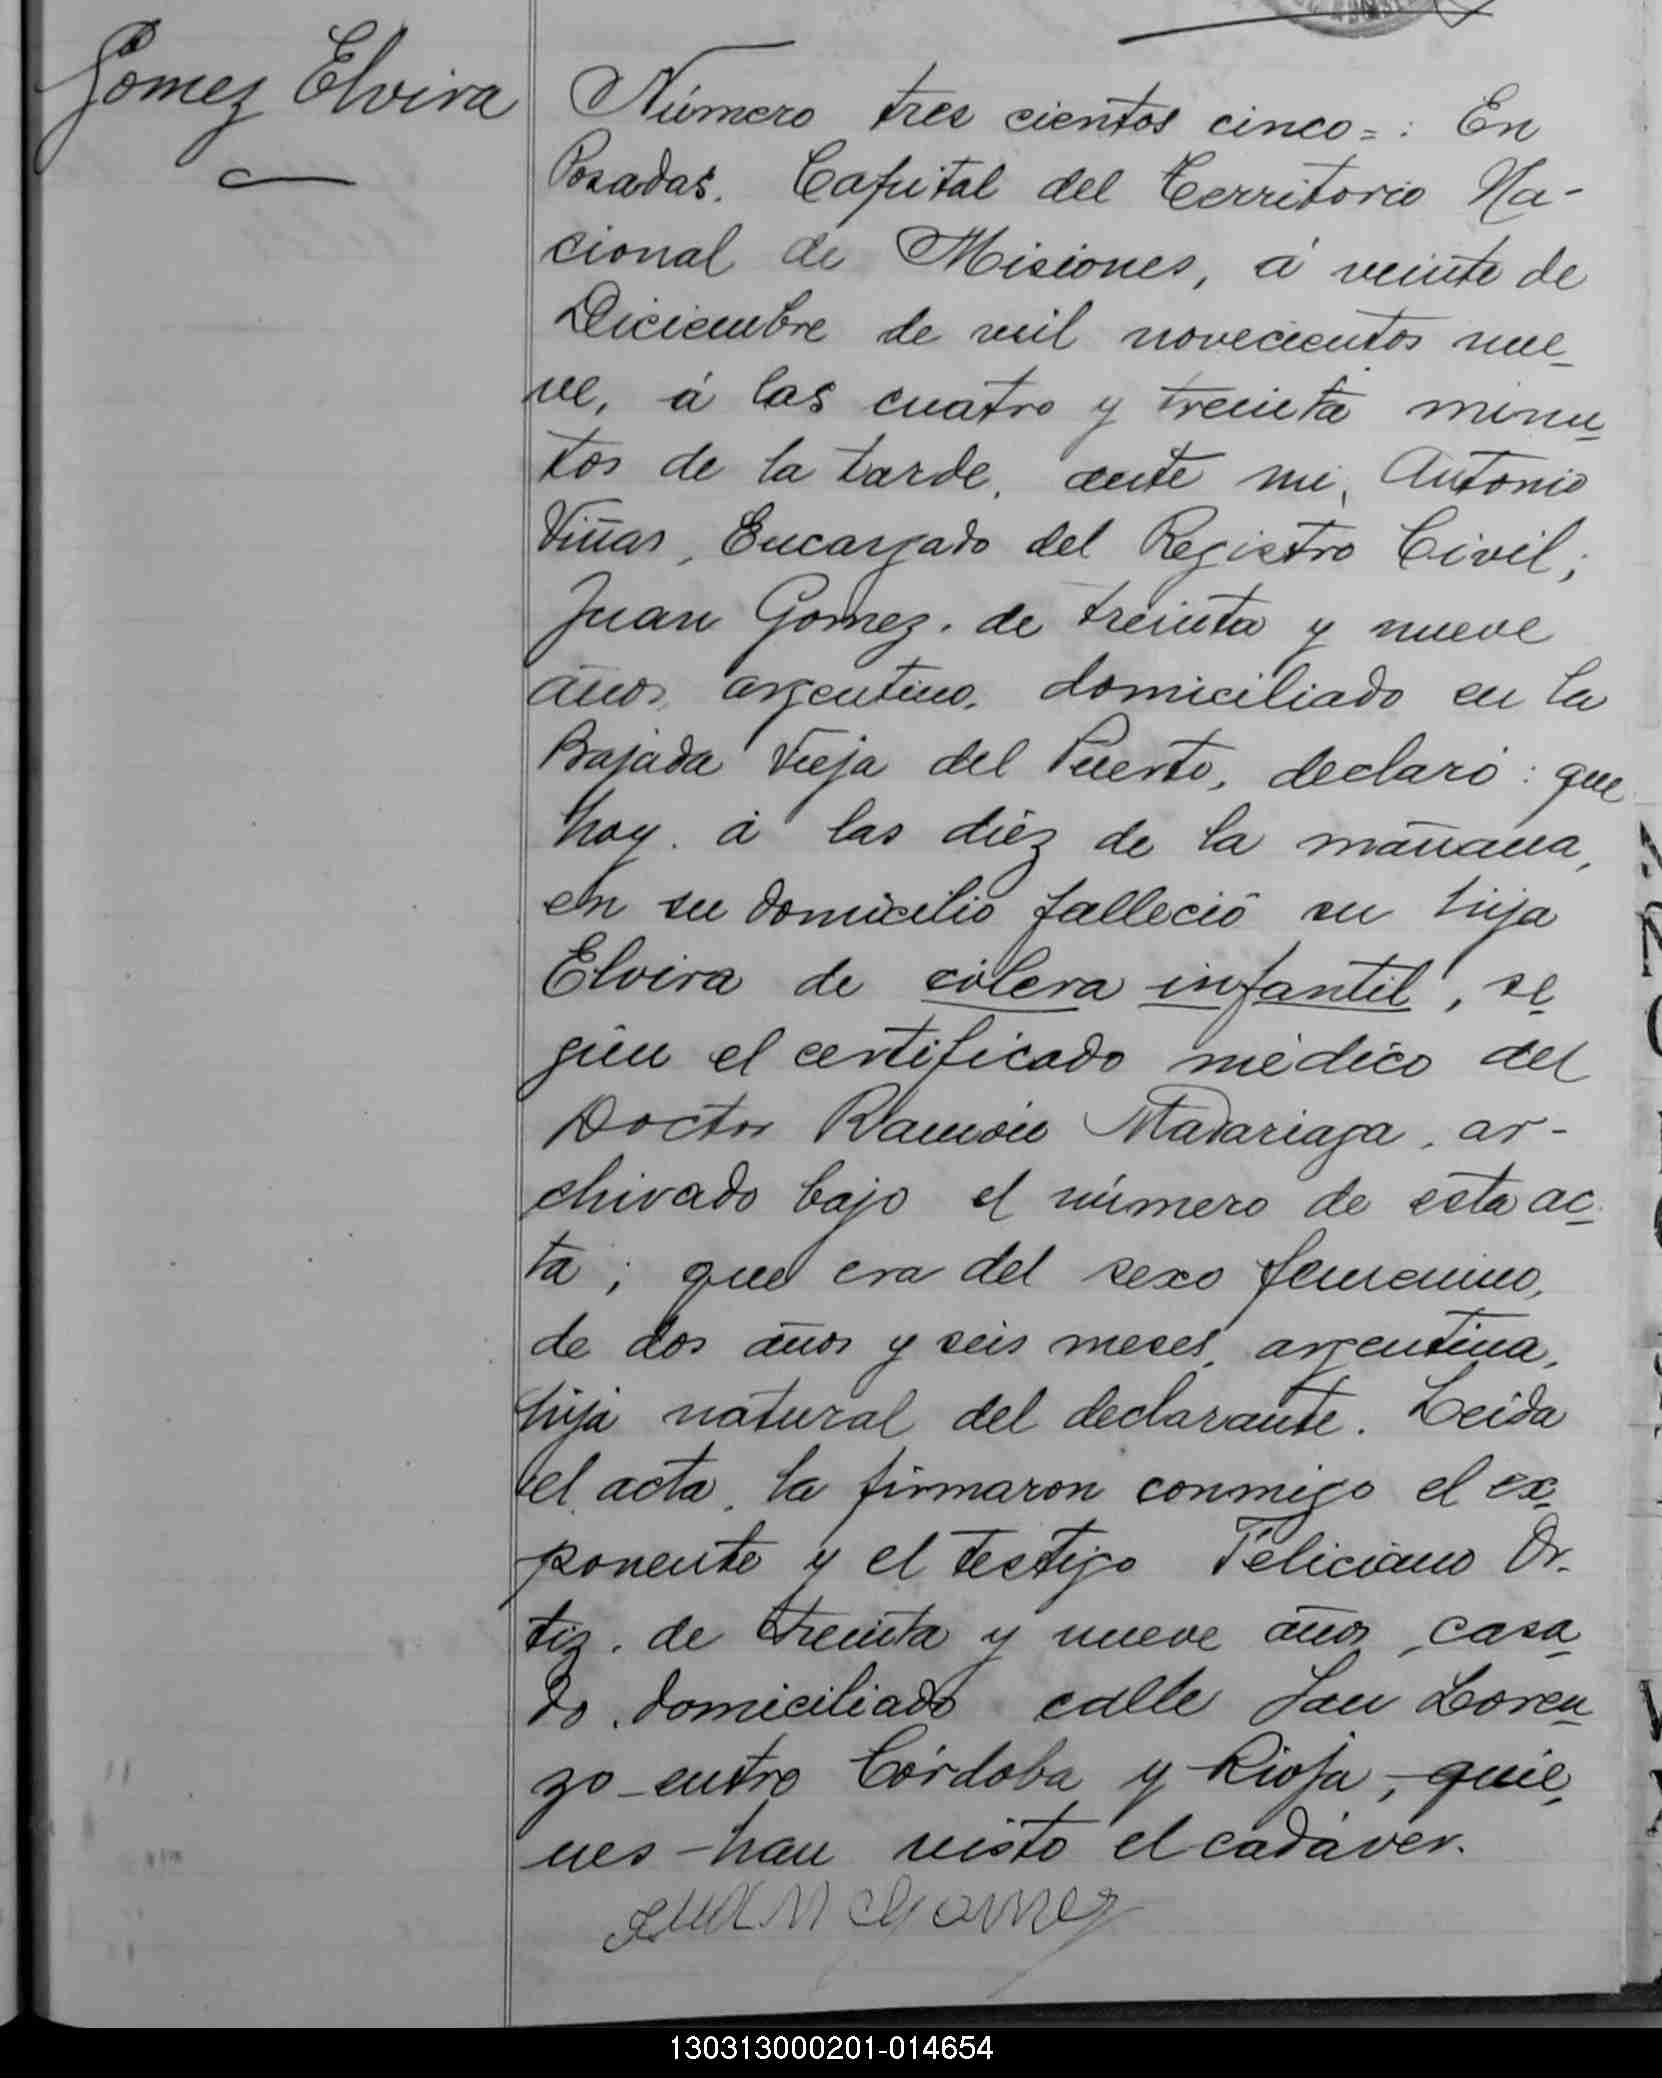 Gomez Elvira
Número tres cientos cinco=: En
Posadas. Capital del Territorio Na-
cional de Misiones, á veinte de
Diciembre de mil novecientos nue-
ve, á las cuatro y treinta minu-
tos de la tarde, ante mi, Antonio
Viñas, Encargado del Registro Civil;
Juan Gomez. de treinta y nueve
años, argentino, domiciliado en la
Bajada Vieja del Puerto, declaró: que
hoy. á las diéz de la mañana,
en su domicilio falleció su hija
Elvira de cólera infantil, se-
gún el certificado médico del
Doctor Ramón Madariaga, ar-
chivado bajo el número de esta ac-
ta; que era del sexo femenino,
de dos años y seis meses, argentina,
hija natural del declarante. Leida
el acta, la firmaron conmigo el ex-
ponente y el testigo Feliciano Or-
tiz. de treinta y nueve años, casa-
do, domiciliado calle San Loren-
zo entre Córdoba y Rioja, quie-
nes han visto el cadáver.
Juan Gomez
130313000201-014654